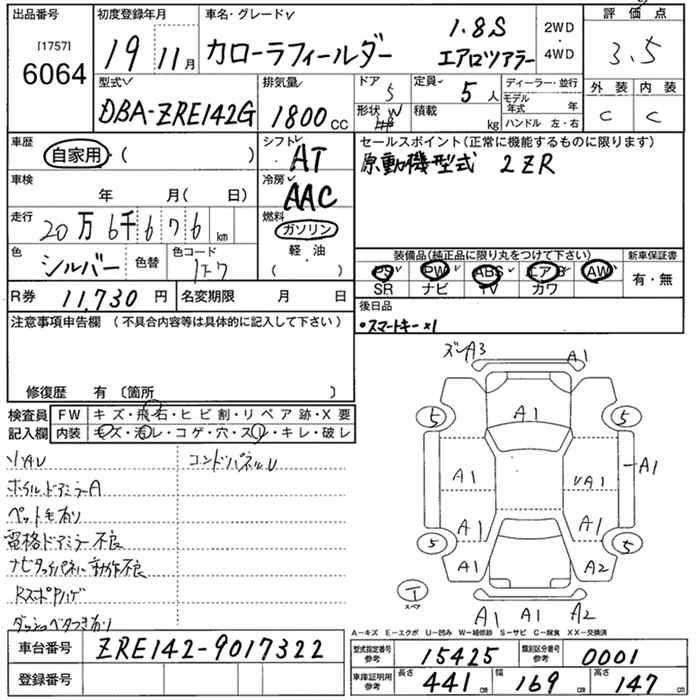 出品番号
[1757]
6064
初度登録年月
19 11月
車名・グレード
カローラフィールダー
1.8S
エアロツアラー
2WD
・
4WD
評価点
3.5
型式
DBA-ZRE142G
排気量
1800 CC
ドア 5
形状 W
定員 5人
積載 kg
ディーラー・並行
モデル年式 年
ハンドル 左・右
外装 C
内装 C
車歴
自家用・( )
シフト
AT
セールスポイント(正常に機能するものに限ります)
原動機型式 2ZR
車検
年 月( 日)
冷房
AAC
走行
20万6千676km
燃料
ガソリン
軽・油
( ・ )
色
シルバー
色替
色コード
1F7
装備品(純正品に限り丸をつけて下さい)
PS PW ABS エアB AW
SR ナビ TV カワ
新車保証書
有・無
R券 11,730円
名変期限 月 日
後日品
○スマートキー×1
注意事項申告欄(不具合内容等は具体的に記入して下さい)
修復歴 有〔箇所 〕
検査員
記入欄
FW キズ・飛石・ヒビ割・リペア跡・X要
内装 キズ・汚レ・コゲ・穴・スリ・キレ・破レ
ソトAU
コンドパネルU
ホイルドアミラーA
ペット毛有り
電格ドアミラー不良
ナビタッチパネル動作不良
RスポPハゲ
ダッシュベタつき有り
ズレA3
A1
5
A1
5
A1
A1
UA1
A1
A1
5
A1
A2
5
I
スペア
A1 A1 A2
A-キズ E-エクボ U-凹み W-補修跡 S-サビ C-腐食 XX-交換済
車台番号
ZRE142-9017322
登録番号
型式指定番号
参考
15425
類別区分番号
参考
0001
車庫証明用
参考
長さ 441cm
幅 169cm
高さ 147cm